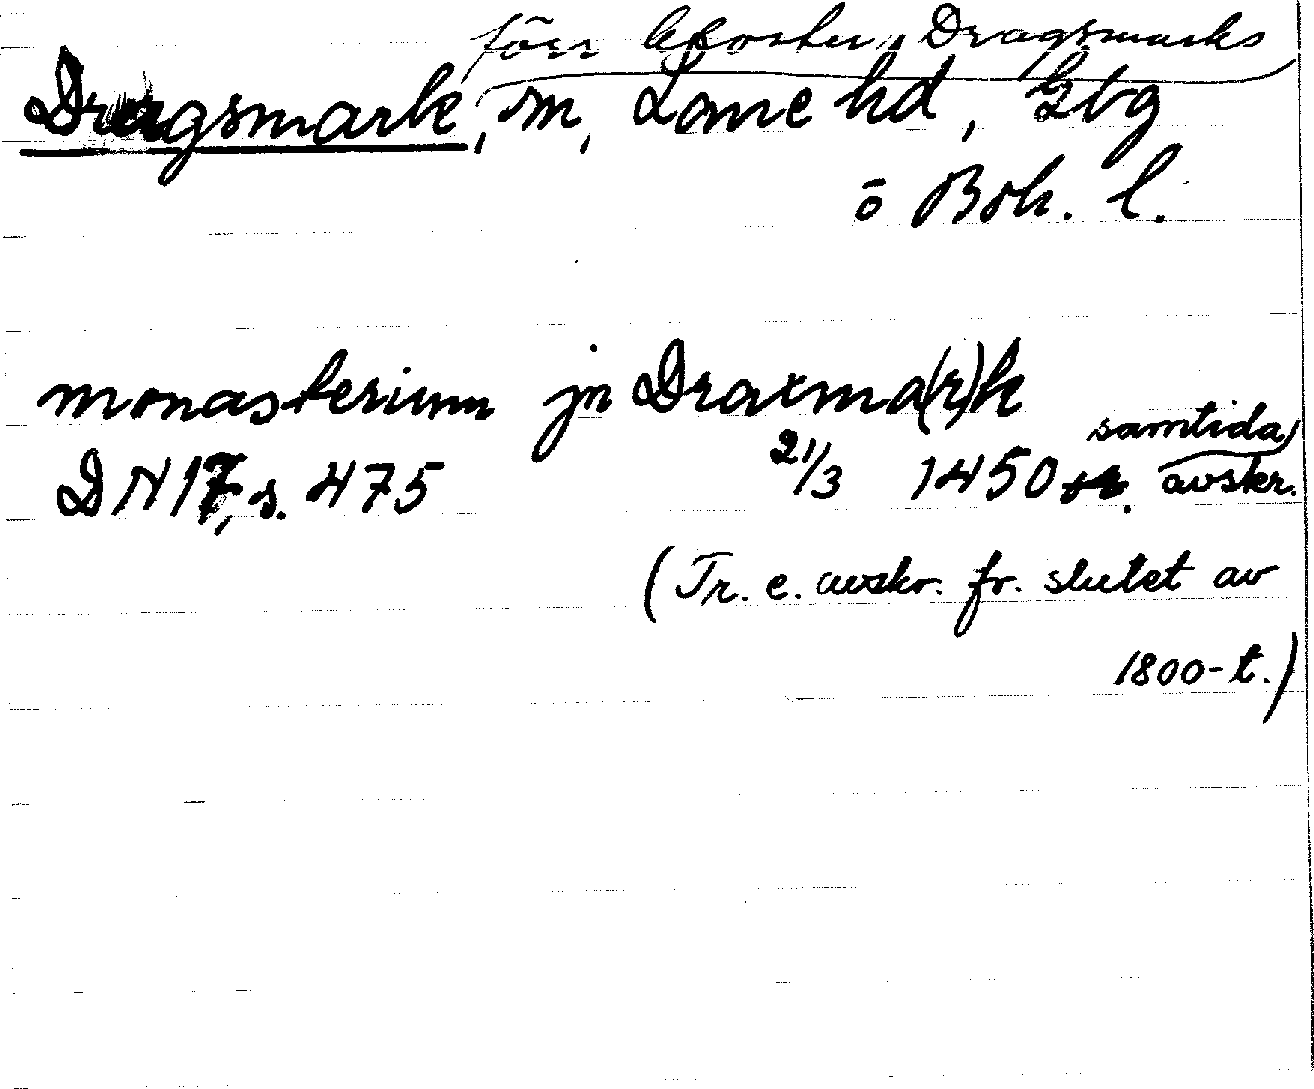 förr kloster, Dragsmarks
Dragsmark, sn, Lane hd, Gbg
o Boh. l.
monasterium jn Draxma(r)k
samtida
DN 17, s. 475 21/3 1450 avskr.
(Tr. e. avskr. fr. slutet av
1800-t.)